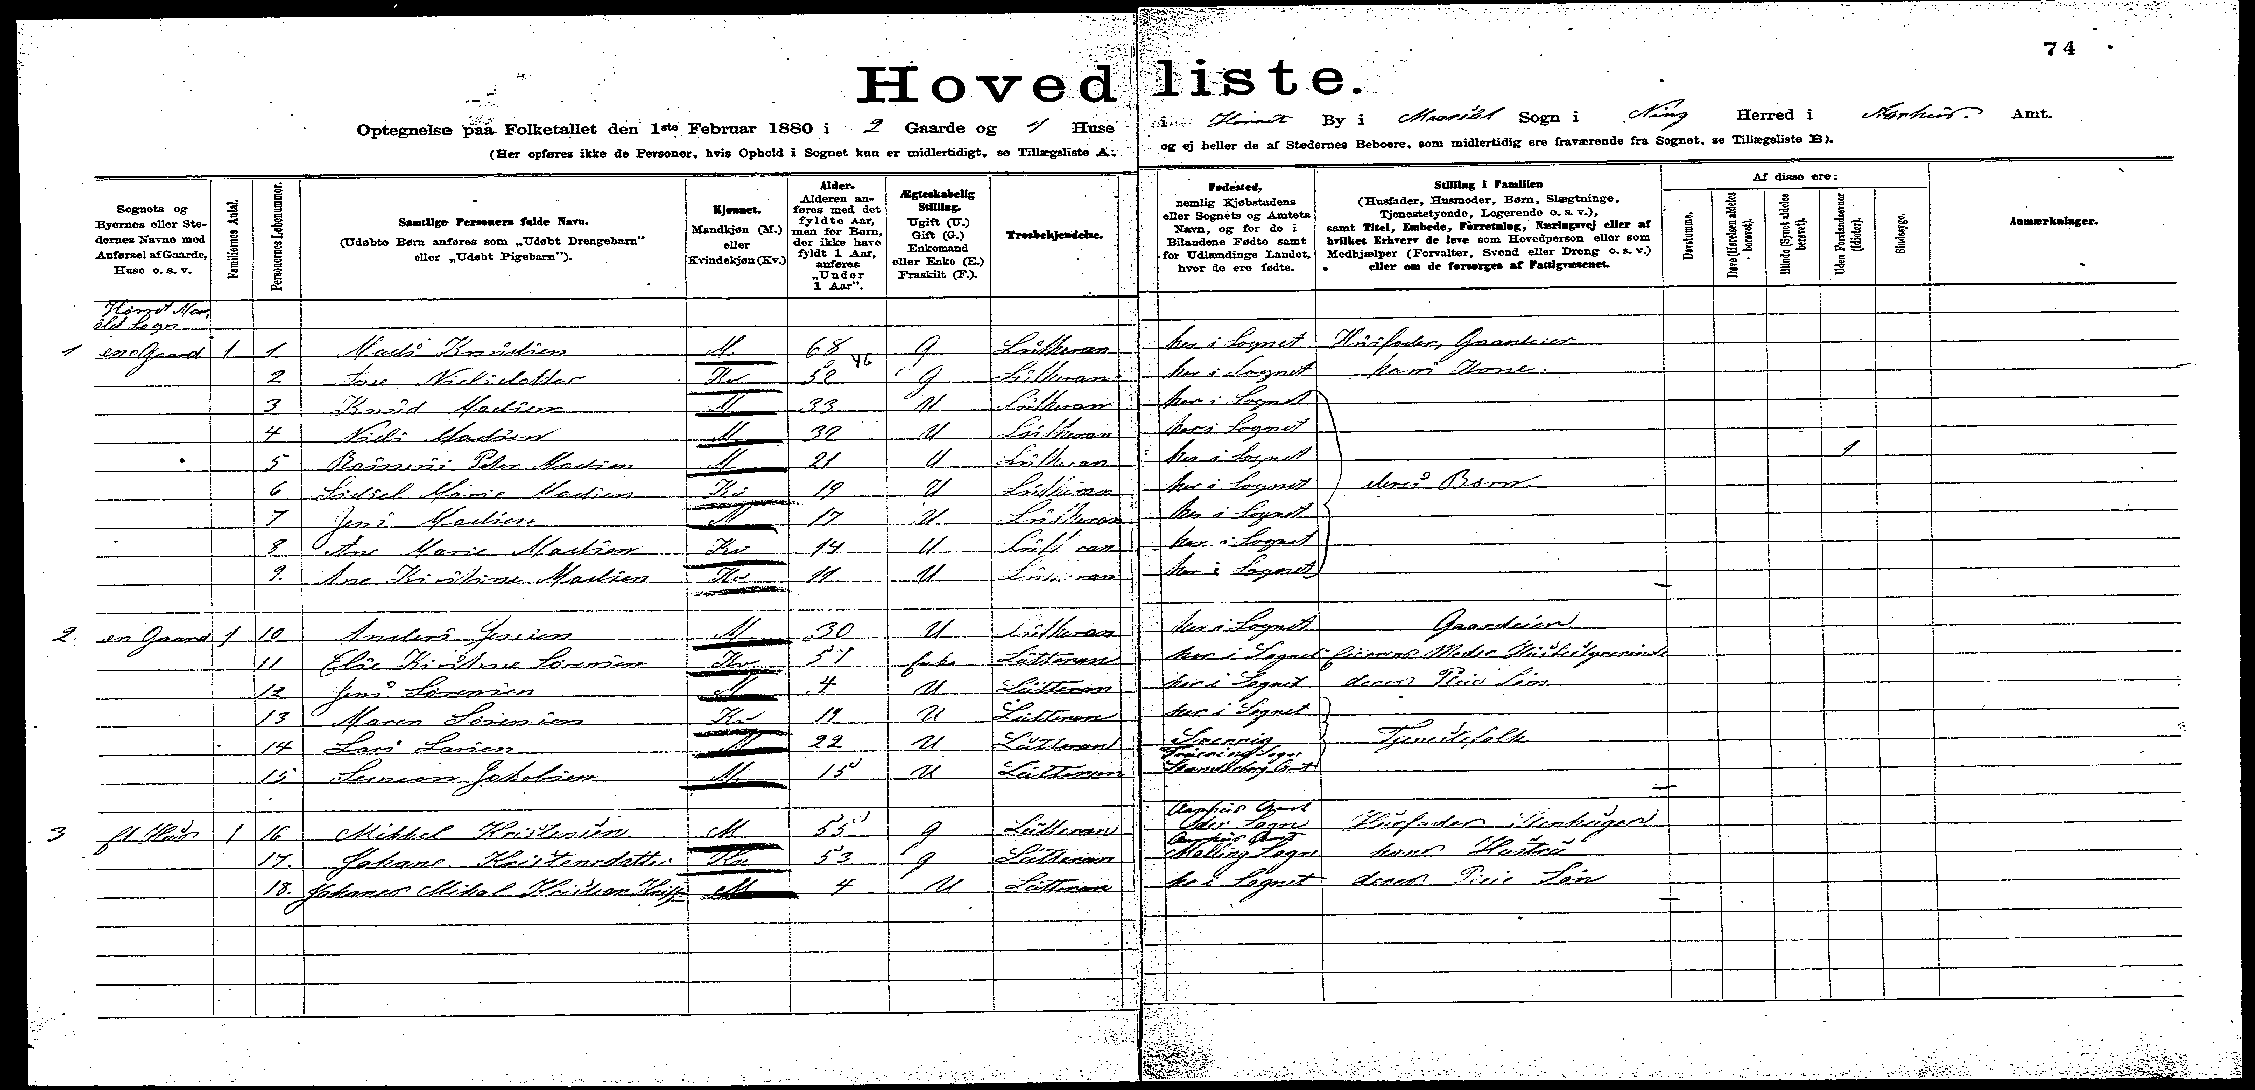 74
Hovedliste.
Optegnelse paa Folketallet den 1ste Februar 1880 i 2 Gaarde og 1 Huse i By i Sogn i Ning Herred i Aarhus Amt.
(Her opføres ikke de Personer, hvis Ophold i Sognet kun er midlertidigt, se Tillægsliste A. og ej heller de af Stedernes Beboere, som midlertidig ere fraværende fra Sognet, se Tillægsliste B).
Sognets og Byernes eller Stedernes Navne med Anførsel af Gaarde, Huse o. s. v.
Familiernes Antal.
Personernes Løbenummer.
Samtlige Personers fulde Navn.
(Udøbte Børn anføres som „Udøbt Drengebarn" eller „Udøbt Pigebarn").
Kjønnet.
Mandkjøn (M.) eller Kvindekjøn (Kv.)
Alder.
Alderen anføres med det fyldte Aar, men for Børn, der ikke have fyldt 1 Aar, anføres „Under 1 Aar".
Ægteskabelig Stilling.
Ugift (U.) Gift (G.) Enkemand eller Enke (E.) Fraskilt (F.).
Trosbekjendelse.
Fødested,
nemlig Kjøbstadens eller Sognets og Amtets Navn, og for de i Bilandene Fødte samt for Udlændinge Landet, hvor de ere fødte.
Stilling i Familien
(Husfader, Husmoder, Børn, Slægtninge, Tjenestetyende, Logerende o. s. v.),
samt Titel, Embede, Forretning, Næringsvej eller af hvilket Erhverv de leve som Hovedperson eller som Medhjælper (Forvalter, Svend eller Dreng o. s. v.) eller om de forsørges af Fattigvæsenet.
Af disse ere:
Døvstumme.
Døve (Hørelsen aldeles berøvet).
Blinde (Synet aldeles berøvet).
Uden Forstandsevner (Idioter).
Sindssyge.
Anmærkninger.
1 en Gaard 1 1. Mads Knudsen M. 68 G Lutheran her i Sognet Husfader, Gaardeier
2 Ane Nielsdatter Kv 52 46 G Lutheran her i Sognet hans Kone.
3 Knud Madsen M 33 U Lutheran her i Sognet
4 Niels Madsen M 32 U Lutheran her i Sognet
5 Rasmus Peter Madsen M 21 U Lutheran her i Sognet 1
6 Sidsel Marie Madsen Kv 19 U Lutheran her i Sognet deres Børn
7 Jens Madsen M 17 U Lutheran her i Sognet
8 Ane Marie Madsen Kv 14 U Lutheran her i Sognet
9. Ane Kirstine Madsen Kv 11 U Lutheran her i Sognet
2. en Gaard 1 10 Anders Jensen M 30 U Lutheran her i Sognet Gaardeier
11 Else Kirstine Sørensen Kv 51 Lutteran her i Sognet Moder
12 Jens Sørensen M 4 U Lutteran her i Sognet deres Pleie Søn
13 Maren Sørensen Kv 19 U Lutteran her i Sognet
14 Lars Larsen M 22 U Lutteran Sverrig Tjenestefolk
15 Jakobsen M 15 U Lutteran Sogn Skanderborg Amt
3 et Hus 1 16 Mikkel Kristensen M 55 g Lutteran Aarhus Amt Oder Sogn Husfader
17. Johane Kristensdatter Kv 53 g Lutteran Aarhus Amt Malling Sogn hans Hustru
18. Johanes Mikal Kristian M 4 U Lutteran her i Sognet deres Pleie Søn